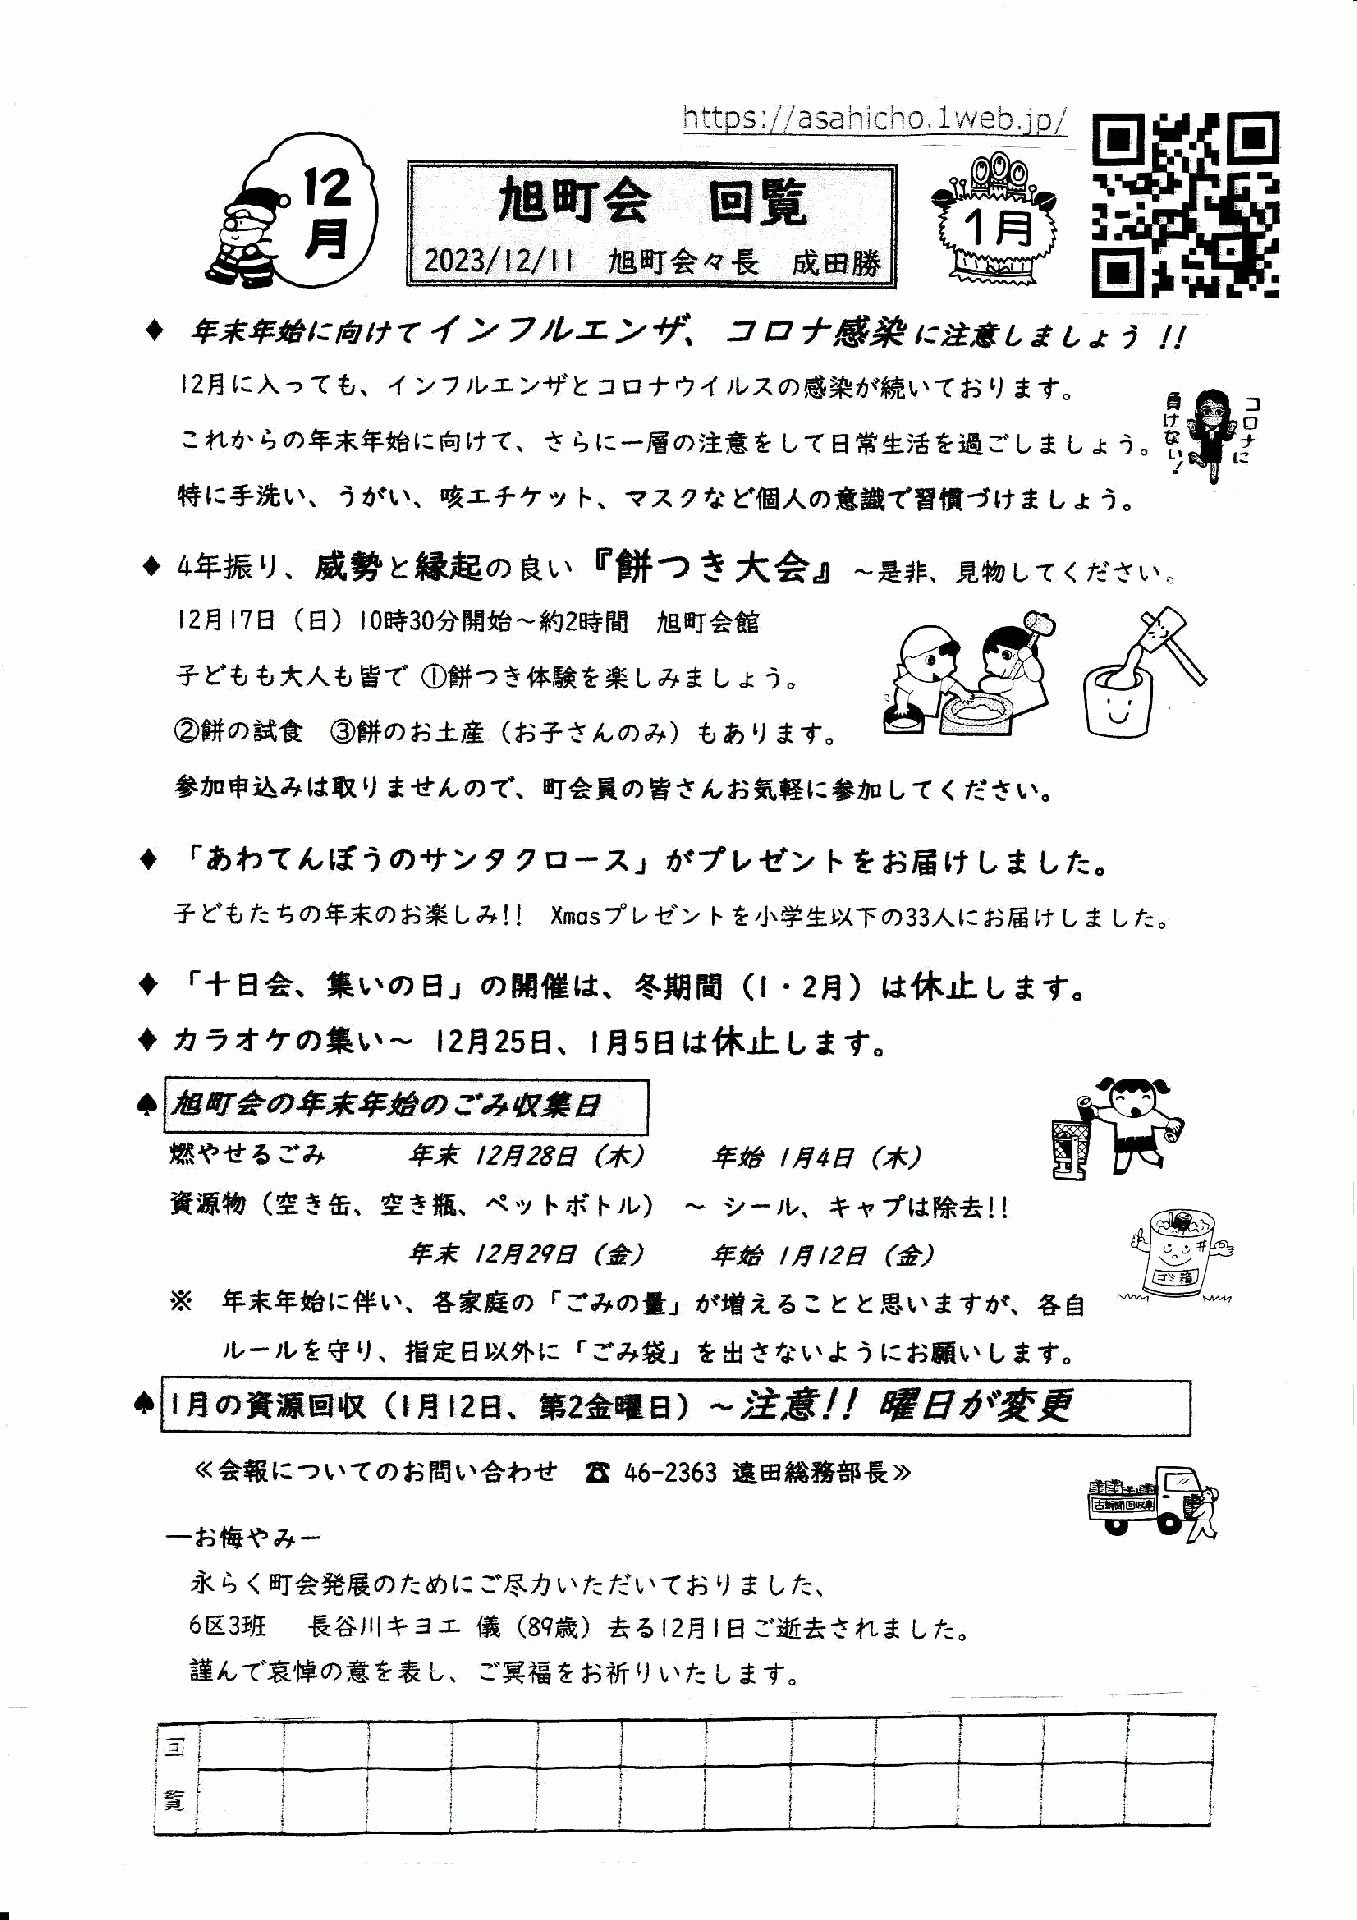 https://asahicho.1web.jp/
12月
旭町会　回覧
2023/12/11　旭町会々長　成田勝
1月
◆ 年末年始に向けてインフルエンザ、コロナ感染に注意しましょう !!
12月に入っても、インフルエンザとコロナウイルスの感染が続いております。
これからの年末年始に向けて、さらに一層の注意をして日常生活を過ごしましょう。
特に手洗い、うがい、咳エチケット、マスクなど個人の意識で習慣づけましょう。
コロナに
負けない!
◆ 4年振り、威勢と縁起の良い『餅つき大会』～是非、見物してください。
12月17日（日）10時30分開始～約2時間　旭町会館
子どもも大人も皆で ①餅つき体験を楽しみましょう。
②餅の試食　③餅のお土産（お子さんのみ）もあります。
参加申込みは取りませんので、町会員の皆さんお気軽に参加してください。
◆ 「あわてんぼうのサンタクロース」がプレゼントをお届けしました。
子どもたちの年末のお楽しみ!!　Xmasプレゼントを小学生以下の33人にお届けしました。
◆ 「十日会、集いの日」の開催は、冬期間（1・2月）は休止します。
◆ カラオケの集い～ 12月25日、1月5日は休止します。
♠ 旭町会の年末年始のごみ収集日
燃やせるごみ　年末 12月28日（木）　年始 1月4日（木）
資源物（空き缶、空き瓶、ペットボトル）～ シール、キャプは除去!!
年末 12月29日（金）　年始 1月12日（金）
ゴミ箱
※　年末年始に伴い、各家庭の「ごみの量」が増えることと思いますが、各自
ルールを守り、指定日以外に「ごみ袋」を出さないようにお願いします。
♠ 1月の資源回収（1月12日、第2金曜日）～注意!! 曜日が変更
≪会報についてのお問い合わせ　☎ 46-2363 遠田総務部長≫
古新聞回収車
―お悔やみ―
永らく町会発展のためにご尽力いただいておりました、
6区3班　長谷川キヨエ 儀（89歳）去る12月1日ご逝去されました。
謹んで哀悼の意を表し、ご冥福をお祈りいたします。
回覧